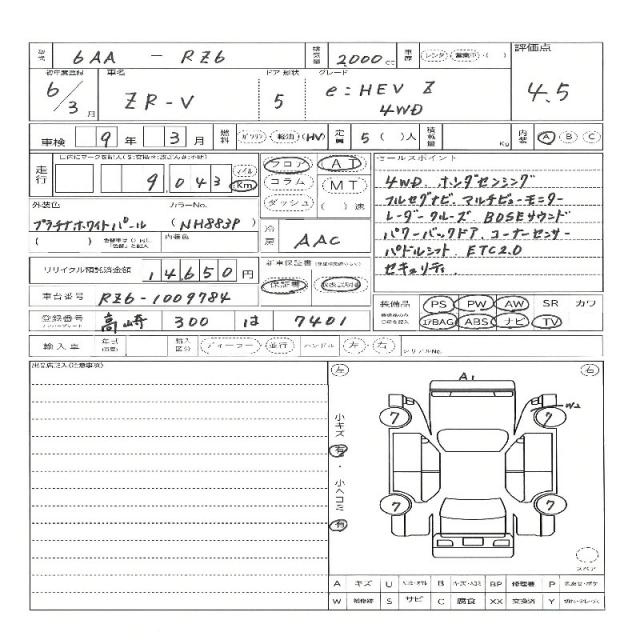 型式 6AA - RZ6 排気量 2,000 cc 車歴 レンタ 営業中 ( ) 評価点
初年度登録 車名 ドア 形状 グレード
6/3月 ZR-V 5 e:HEV Z 4.5
4WD
車検 9年 3月 燃料 ガソリン 軽油 (HV) 定員 5 ( )人 積載量 Kg 内装 A B C
走行 フロア AT セールスポイント
9,043 マイル Km コラム MT 4WD. ホンダセンシング
外装色 カラーNo. ダッシュ ( )速 フルセグナビ. マルチビューモニター
プラチナホワイトパール (NH883P) レーダークルーズ BOSEサウンド
( ) 内装色 冷房 AAC パワーバックドア. コーナーセンサー
新車保証書 パドルシフト. ETC2.0
リサイクル預託済金額 14650円 保証書 取扱説明書 セキュリティ
車台番号 RZ6-1009784 装備品 PS PW AW SR カワ
登録番号 高崎 300 は 7401 I/BAG ABS ナビ TV
輸入車 年式 輸入区分 ディーラー・並行 ハンドル 左・右 シリアルNo.
出品店記入(注意事項) 左 右
A1
7 7 W2
小キズ 有・小ヘコミ 有
7 7
スペア
A キズ U B BP 修理暦 P
W S サビ C 腐食 XX 交換済 Y